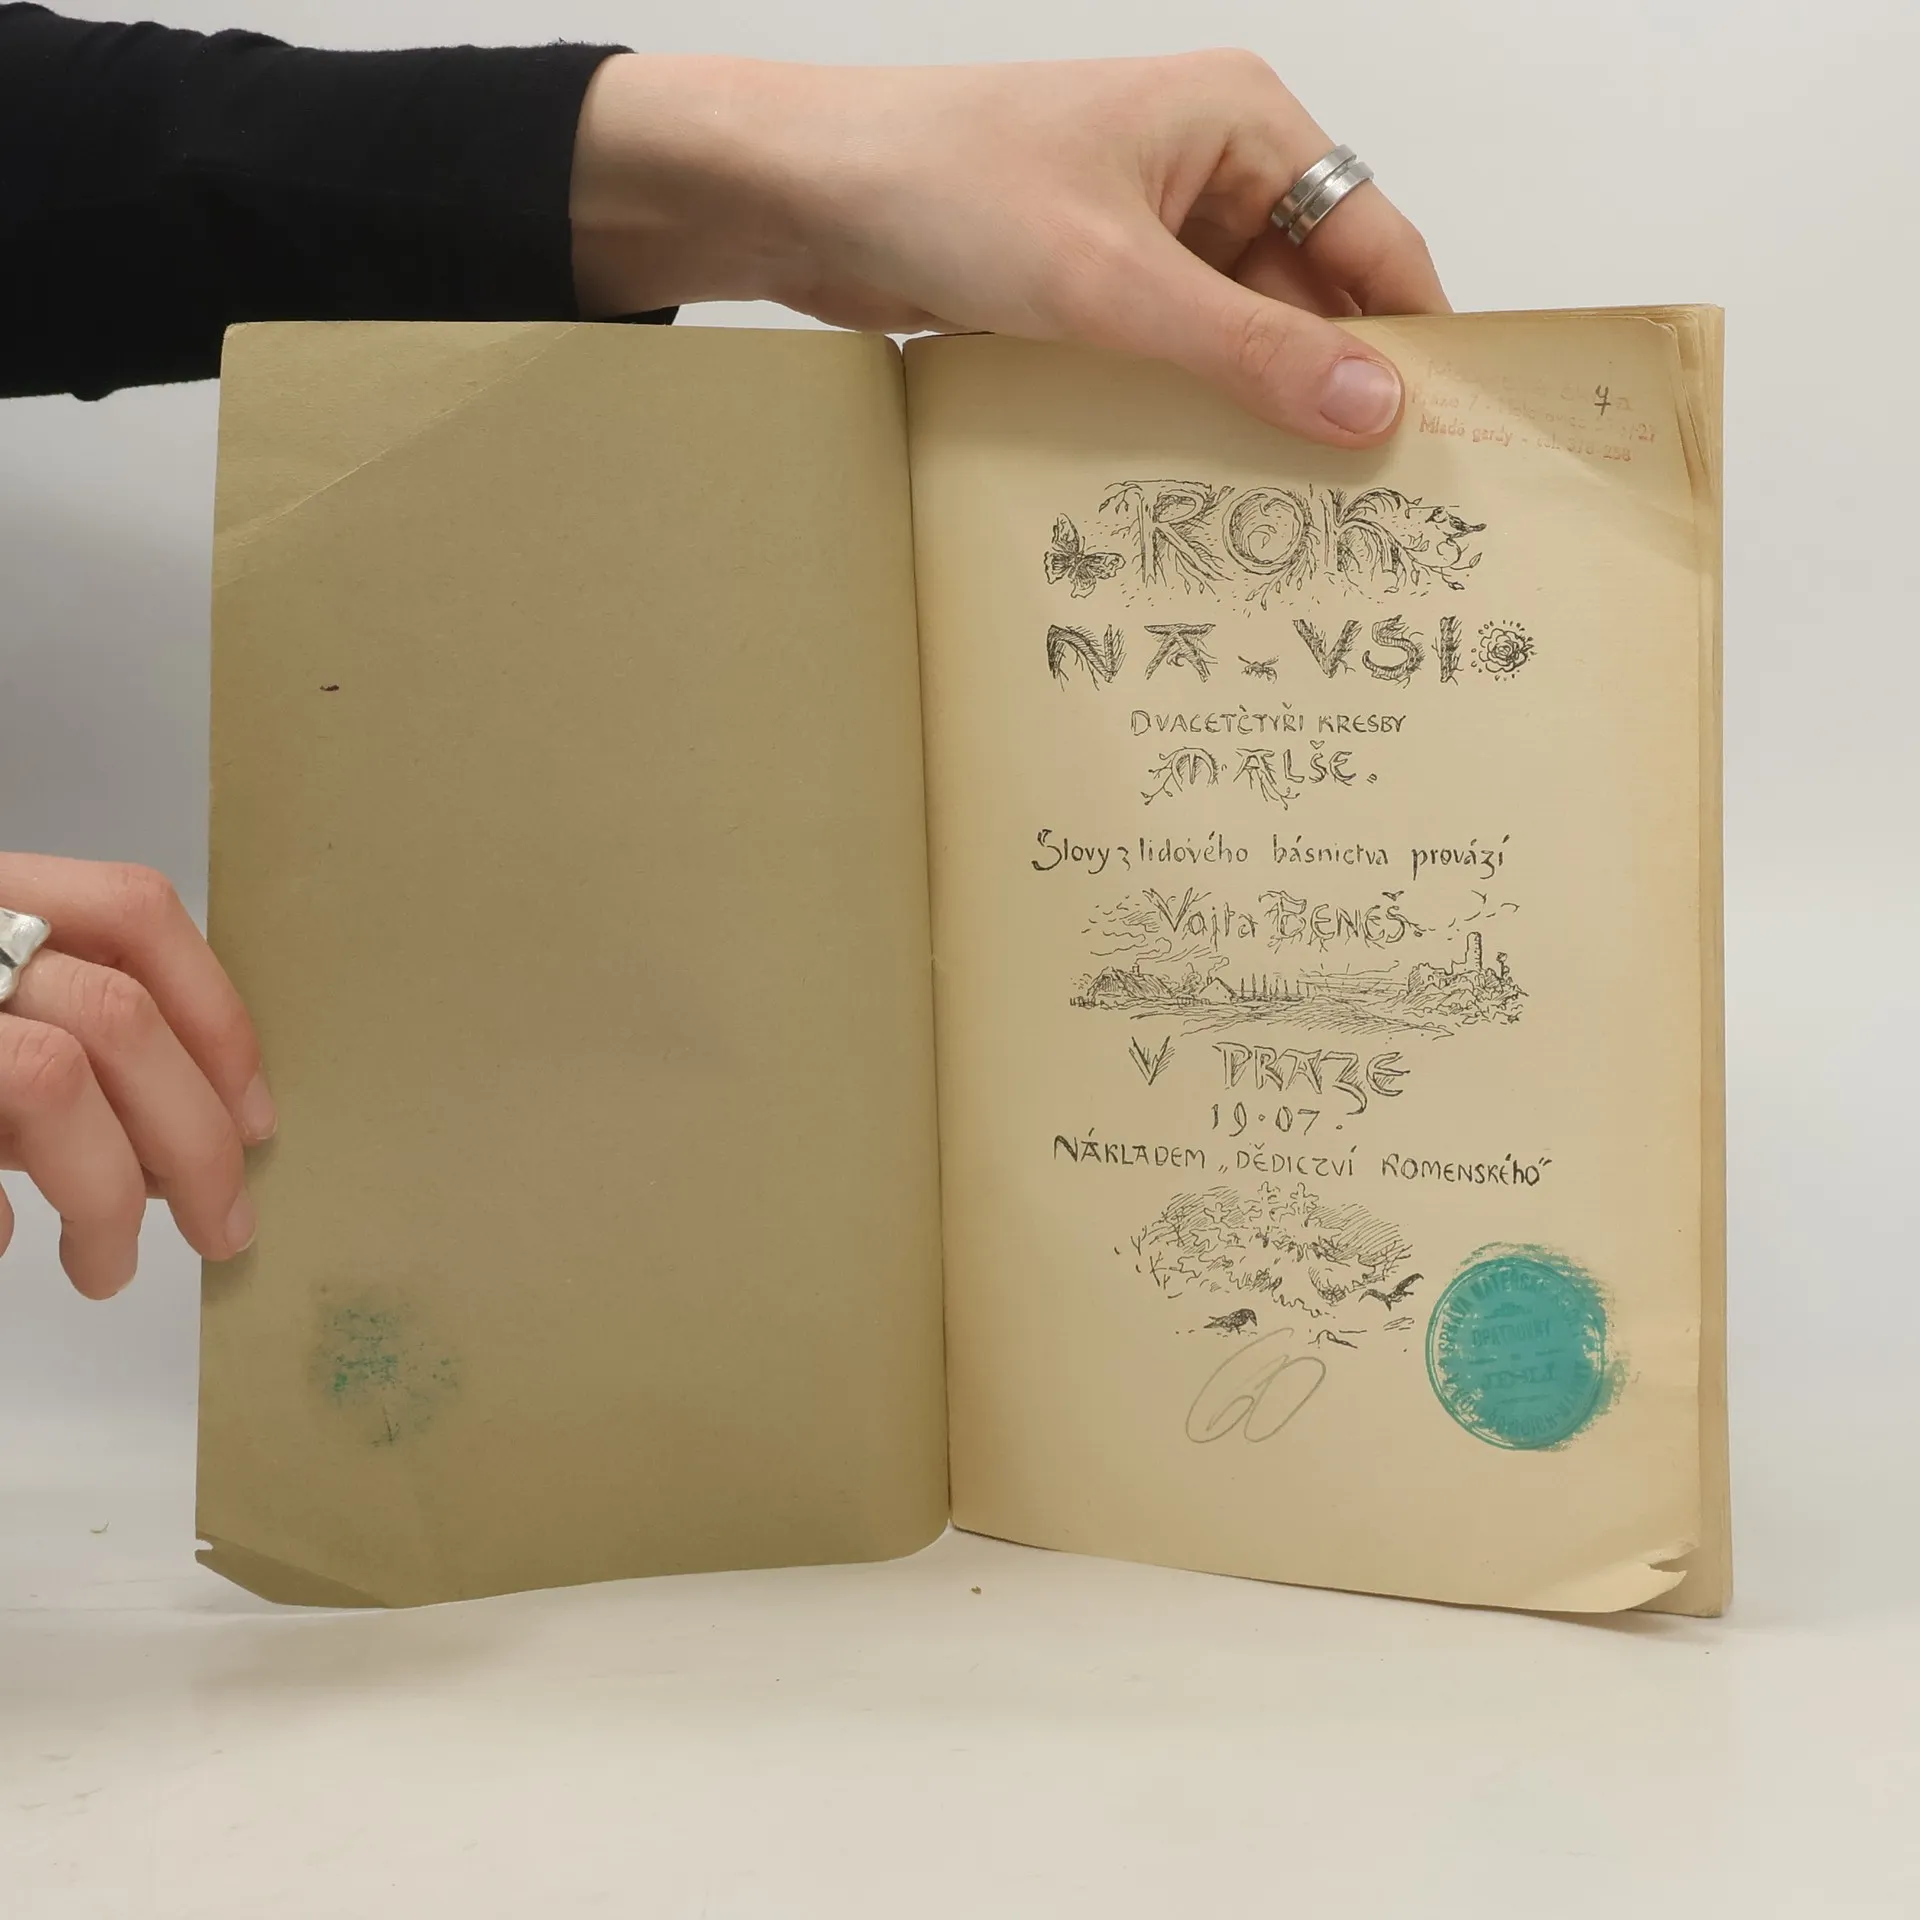 4
Mladé gardy - tel. 378-258
ROK
NA VSI
DVACETČTYŘI KRESBY
M. ALŠE.
Slovy z lidového básnictva provází
Vojta BENEŠ.
V PRAZE
19·07.
NÁKLADEM „DĚDICZVÍ KOMENSKÉHO"
SPRÁVA MATEŘSKÉ
OPATROVNY